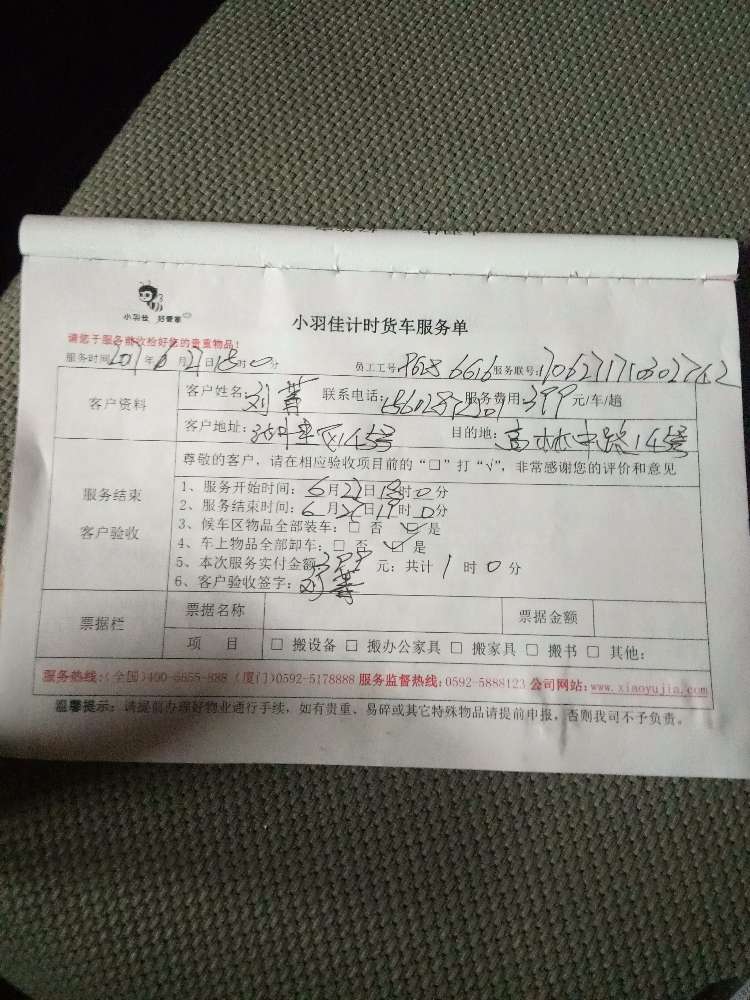 小羽佳 好管家
小羽佳计时货车服务单
请您于服务前收检好您的贵重物品!
服务时间 201 年 6 月 27 日 18 时 0 分 员工工号 服务联号:
客户资料
客户姓名: 刘菁 联系电话: 服务费用: 399 元/车/趟
客户地址: 145号 目的地: 高林中路145号
服务结束
客户验收
尊敬的客户,请在相应验收项目前的“□”打“√”,非常感谢您的评价和意见
1、服务开始时间: 6 月 27 日 18 时 0 分
2、服务结束时间: 6 月 27 日 19 时 0 分
3、候车区物品全部装车: □ 否 ☑ 是
4、车上物品全部卸车: □ 否 ☑ 是
5、本次服务实付金额 399 元; 共计 1 时 0 分
6、客户验收签字: 刘菁
票据栏
票据名称 票据金额
项 目 □ 搬设备 □ 搬办公家具 □ 搬家具 □ 搬书 □ 其他:
服务热线:(全国)400-5655-888 (厦门)0592-5178888 服务监督热线:0592-5888123 公司网站:www.xiaoyujia.com
温馨提示: 请提前办理好物业通行手续,如有贵重、易碎或其它特殊物品请提前申报,否则我司不予负责。